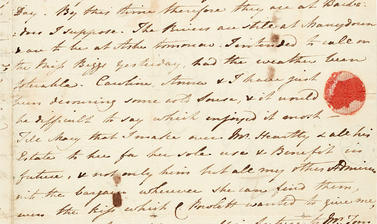 Day. By this time therefore they are at Barba=
=does I suppose. The Rivers are still at Manydown
& are to be at Ashe tomorrow. I intended to call on
the Miss Biggs yesterday, had the weather been
tolerable. Caroline, Anna & I have just
been devouring some cold Souse, & it would
be difficult to say which enjoyed it most
Tell Mary that I make over Mr Heartley & all his
Estate to her for her sole use & Benefit in
future, & not only him, but all my other Admirers
into the bargain wherever she can find them,
even the kiss which C Powlett wanted to give me,